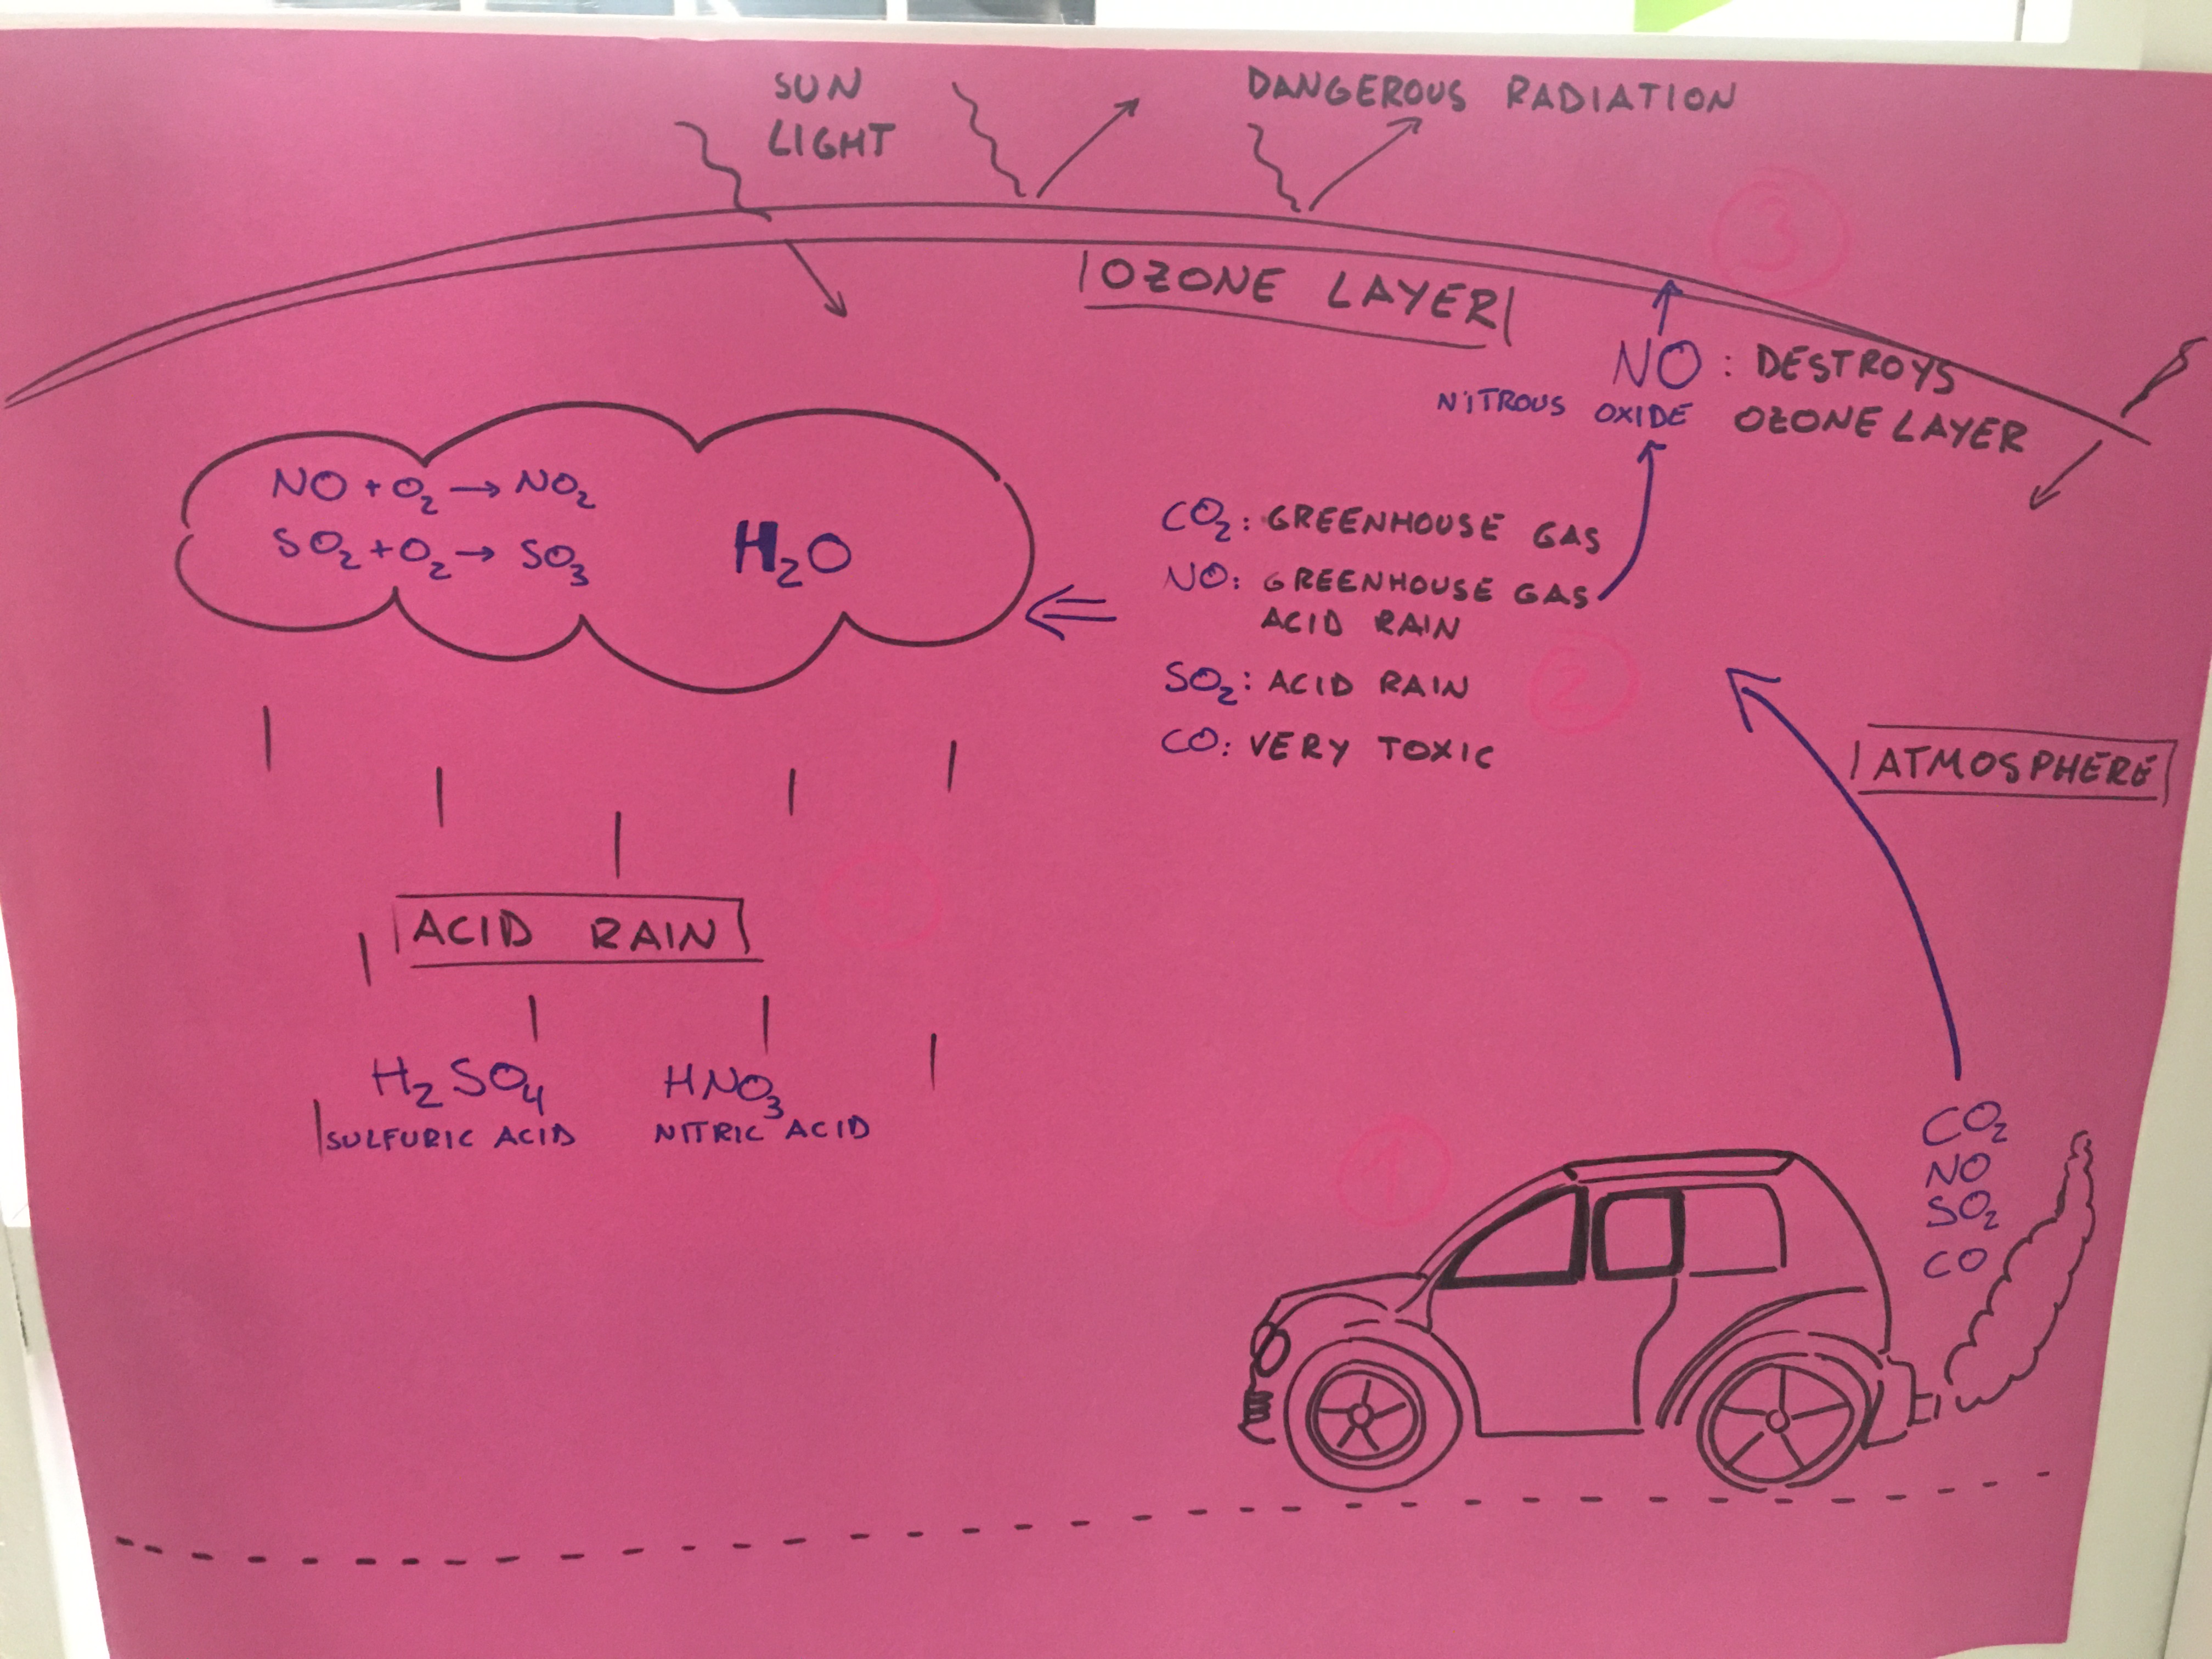 SUN
LIGHT
DANGEROUS RADIATION
3
OZONE LAYER
NO : DESTROYS
NITROUS OXIDE OZONE LAYER
NO + O₂ → NO₂
SO₂ + O₂ → SO₃
H₂O
CO₂: GREENHOUSE GAS
NO: GREENHOUSE GAS
ACID RAIN
SO₂: ACID RAIN
2
CO: VERY TOXIC
ATMOSPHERE
ACID RAIN
H₂SO₄
SULFURIC ACID
HNO₃
NITRIC ACID
1
CO₂
NO
SO₂
CO